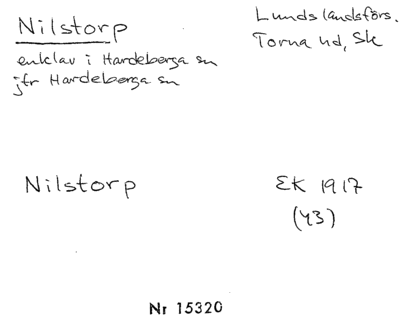 Nilstorp
Lundslandsförs.
enklav i Hardeberga sn
Torna hd, Sk
jfr Hardeberga sn
Nilstorp
EK 1917
(43)
Nr 15320